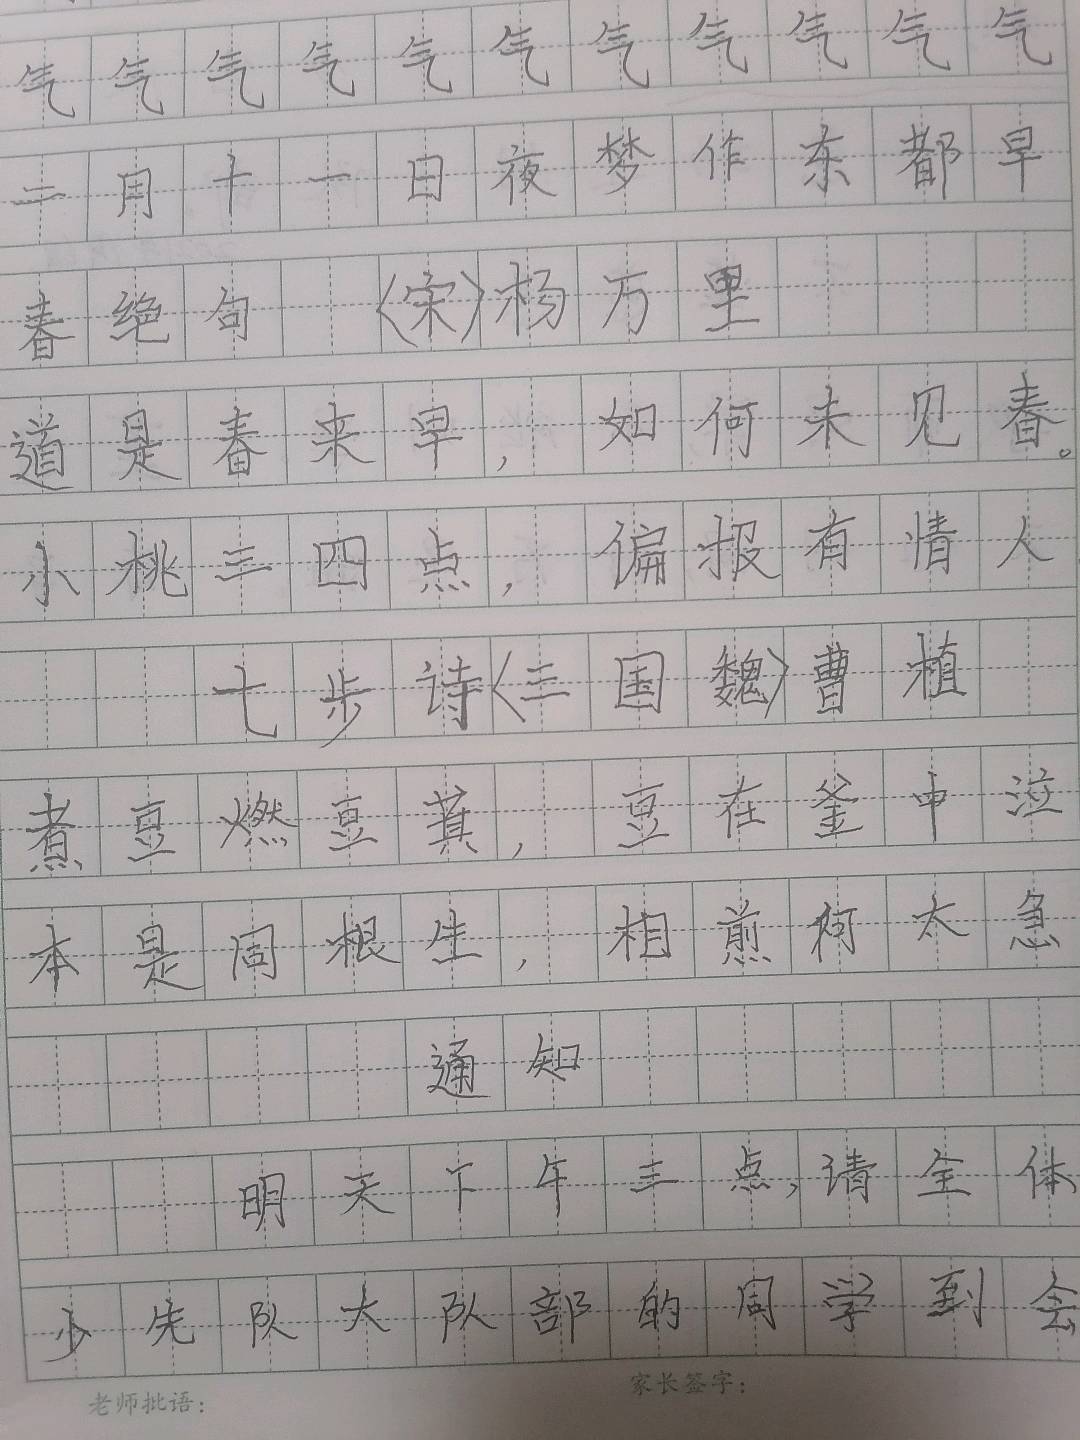 气气气气气气气气气气气
二月十一日夜梦作东都早
春绝句 〈宋〉杨万里
道是春来早，如何未见春。
小桃三四点，偏报有情人
七步诗〈三国魏〉曹植
煮豆燃豆萁，豆在釜中泣
本是同根生，相煎何太急
通知
明天下午三点，请全体
少先队大队部的同学到会
老师批语：
家长签字：